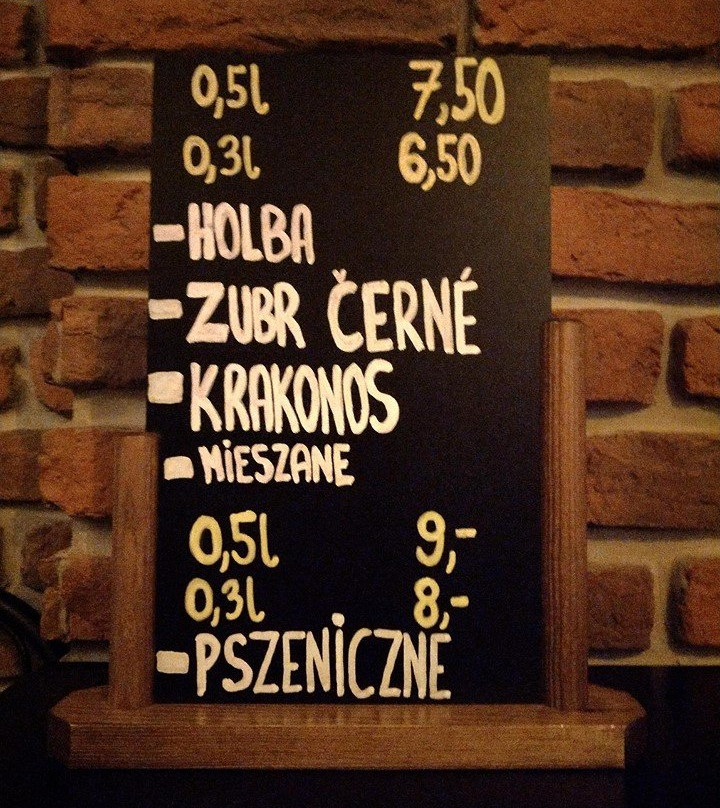 0,5l 7,50
0,3l 6,50
-HOLBA
-ZUBR ČERNÉ
-KRAKONOS
-MiESZANE
0,5l 9,-
0,3l 8,-
-PSZENiCZNE